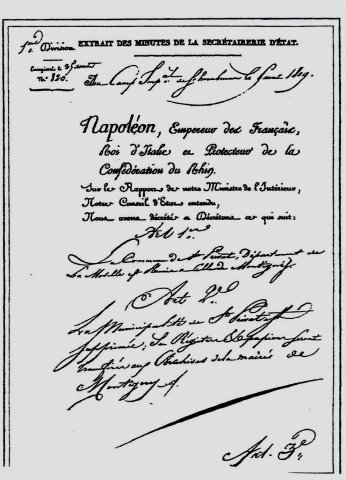 1ere Division.
EXTRAIT DES MINUTES DE LA SECRÉTAIRERIE D'ÉTAT.
Enregistré le 25 aout
No. 120.
Au Camp Impal de Schoenbrunn le 6 aout 1809.
Napoléon, Empereur des Français,
Roi d'Italie et Protecteur de la
Confédération du Rhin.
Sur le Rapport de notre Ministre de l'Intérieur,
Notre Conseil d'Etat entendu,
Nous avons décrété et Décrétons ce qui suit:
Art 1er
La Commune de St Privat, Département de
La Moselle est Réunie à Celle de Montigny.
Art 2e
La Municipalité de St Privat est
Supprimée; Ses Registres & papiers seront
transférés aux Archives de la mairie de
Montigny.
Art. 3e